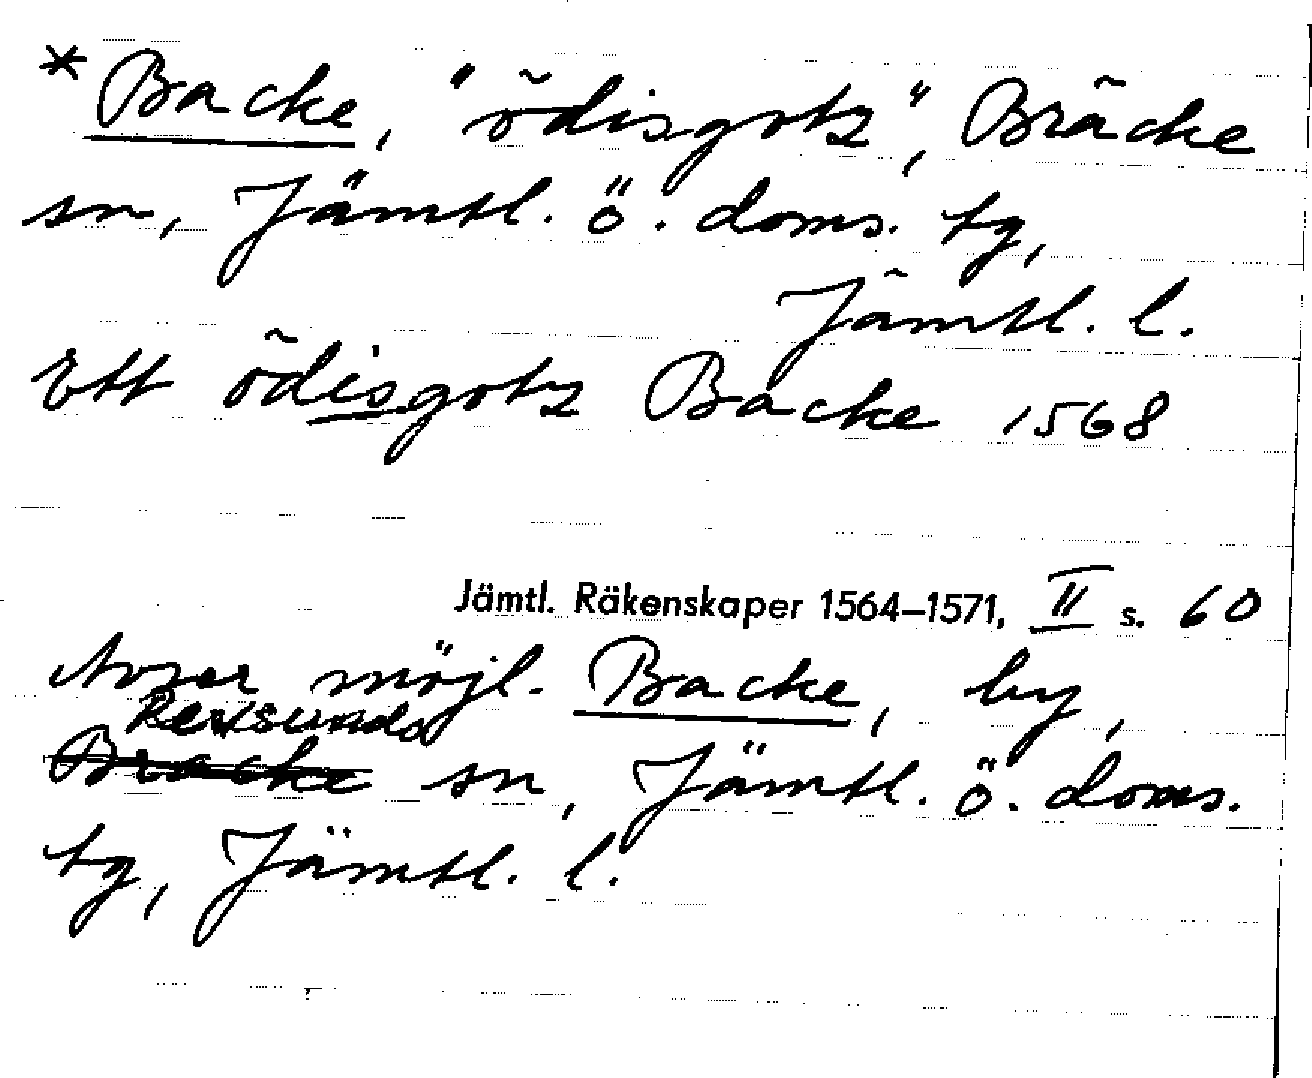 *Backe, "ödisgotz", Bräcke
sn, Jämtl. ö. doms. tg,
Jämtl. l.
Ett ödisgotz Backe 1568
Jämtl. Räkenskaper 1564–1571, II s. 60
Avser möjl. Backe, by,
Revsunds
Bräcke sn, Jämtl. ö. doms.
tg, Jämtl. l.